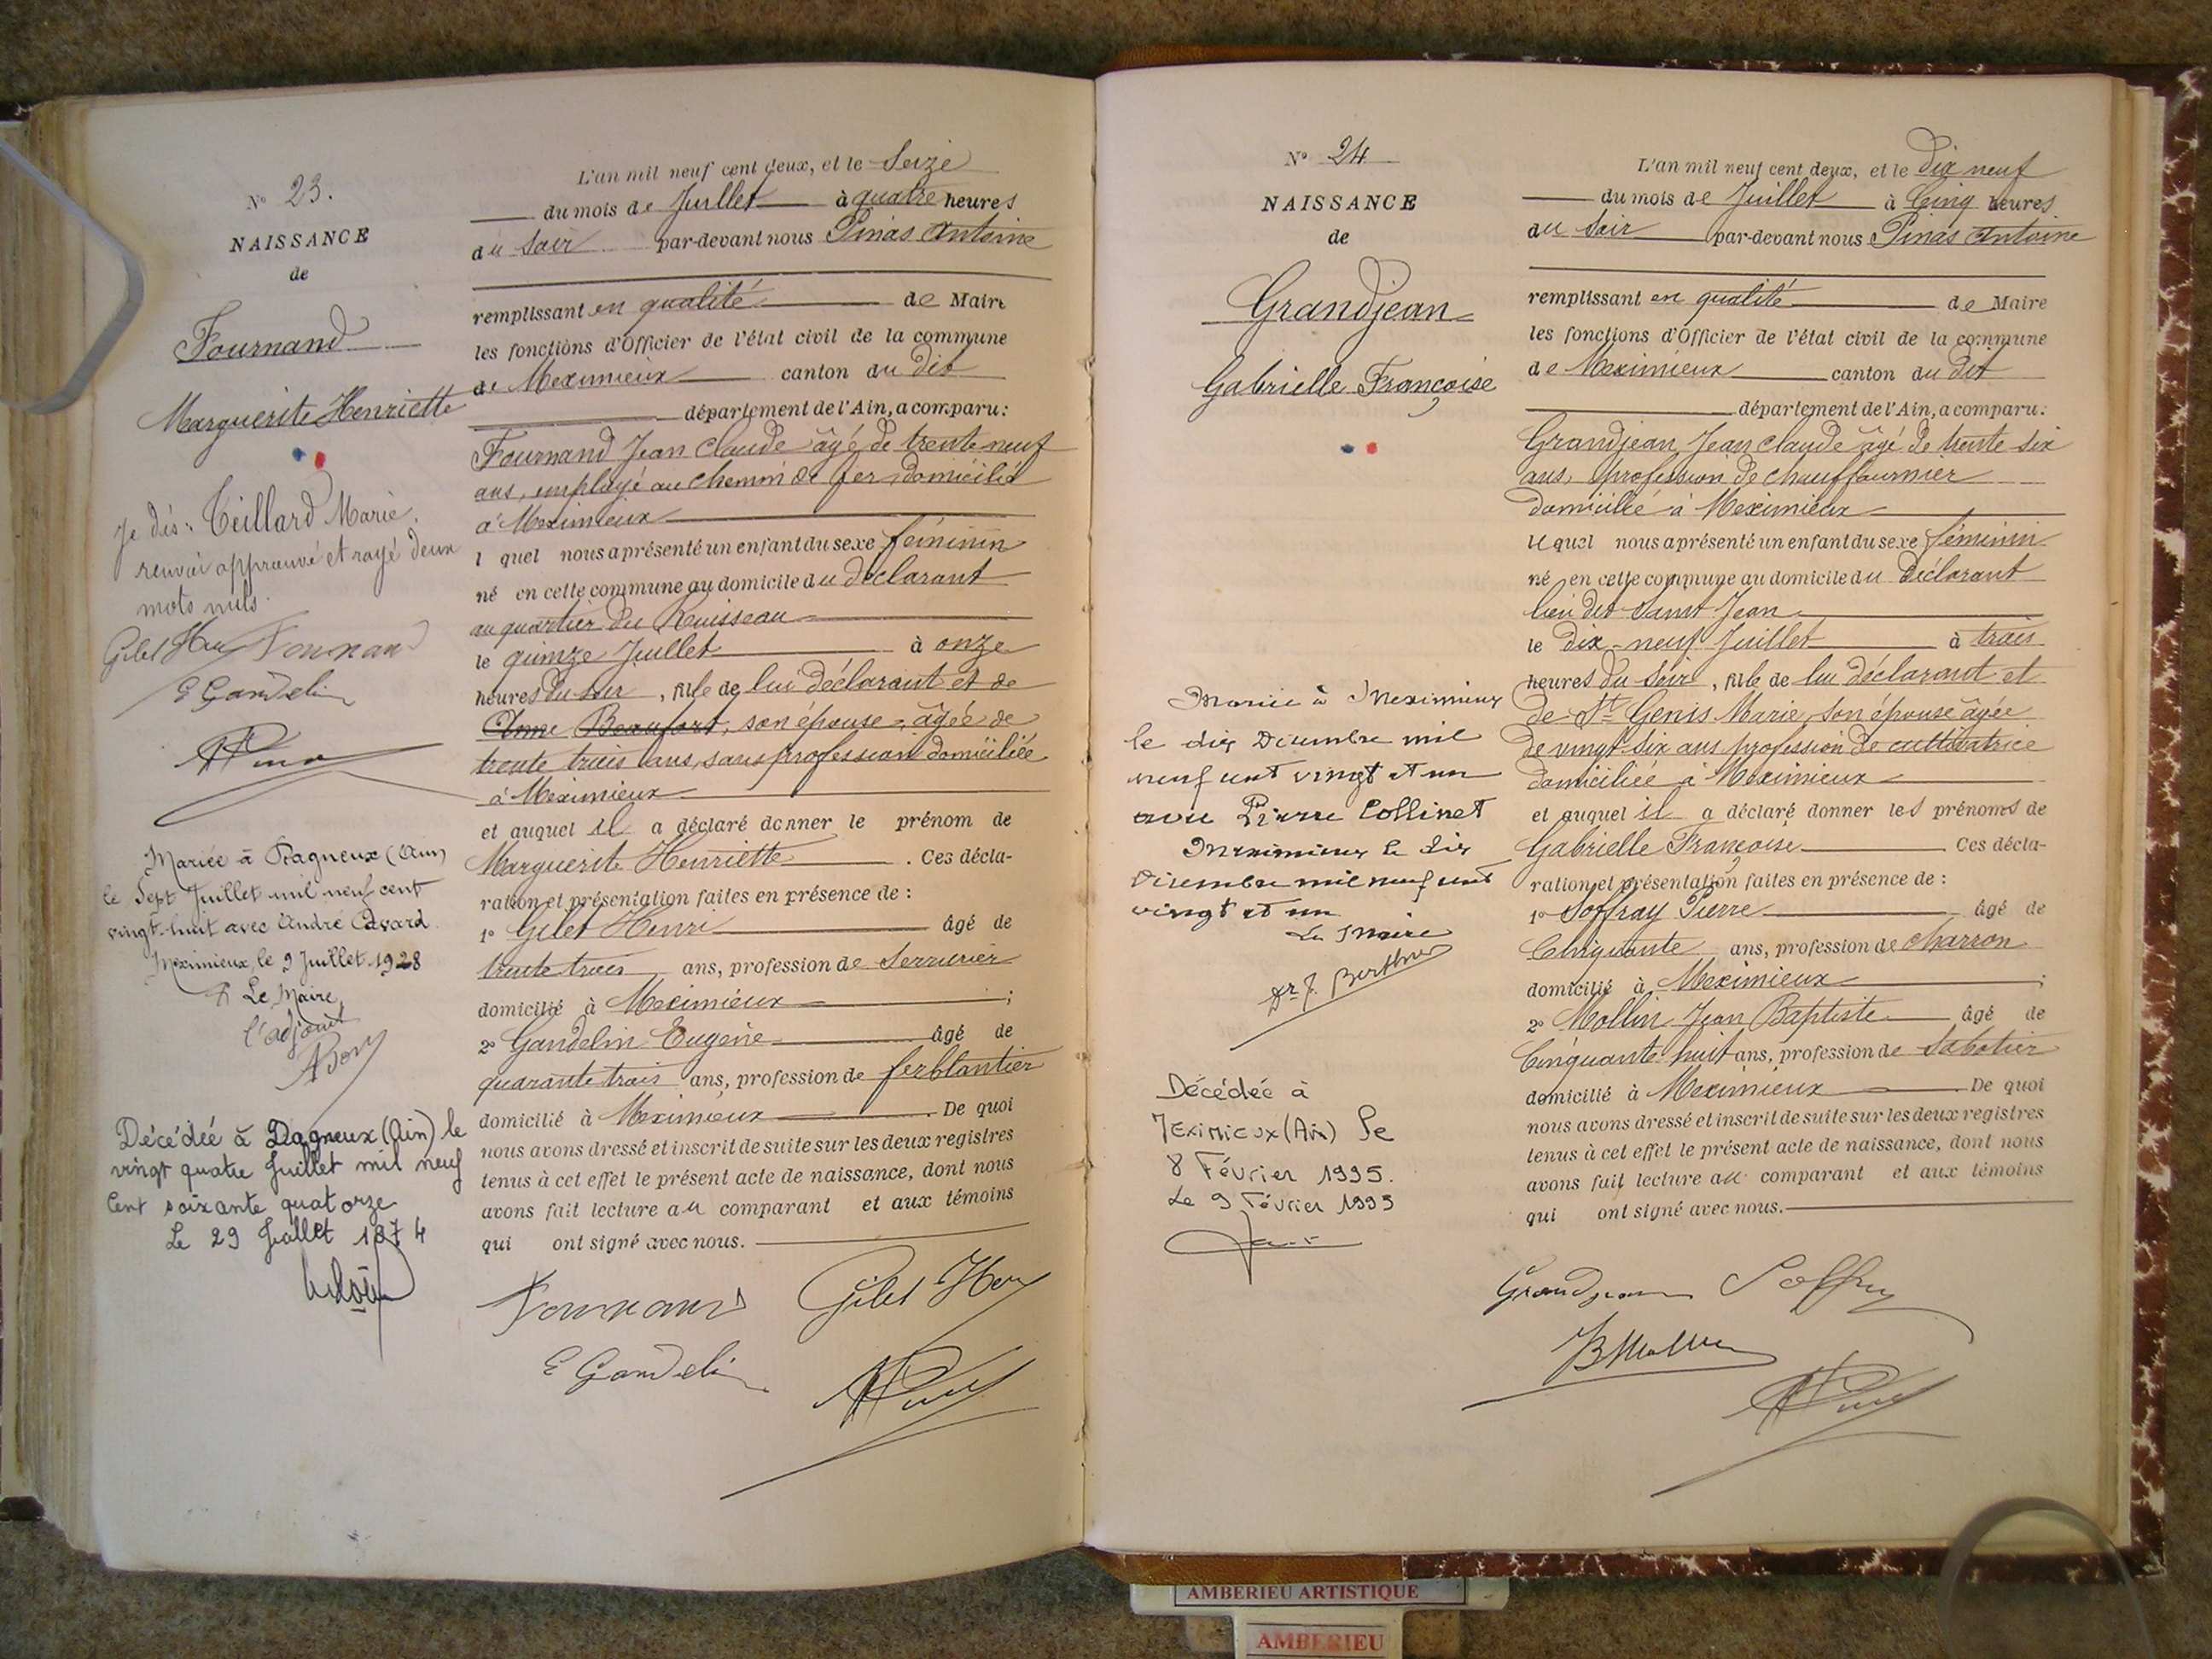 N° 23.
NAISSANCE
de
Fournand
Marguerite Henriette
Je dis : Teillard Marie.
renvoi approuvé et rayé deux
mots nuls.
Gilet Hri Fournand
E Gandelin
Mariée à Dagneux (Ain)
le Sept Juillet mil neuf cent
vingt-huit avec André Cavard.
Meximieux, le 9 Juillet 1928
P. Le Maire,
l'adjoint
Décédée à Dagneux (Ain) le
vingt quatre Juillet mil neuf
Cent soixante quatorze
Le 29 Juillet 1974
L'an mil neuf cent deux, et le Seize
du mois de Juillet à quatre heures
du Soir par-devant nous Pinas Antoine
remplissant en qualité de Maire
les fonctions d'Officier de l'état civil de la commune
de Meximieux canton du dit
département de l'Ain, a comparu :
Fournand Jean Claude âgé de trente neuf
ans, employé au chemin de fer domicilié
à Meximieux
l quel nous a présenté un enfant du sexe féminin
né en cette commune au domicile du déclarant
au quartier du Ruisseau
le quinze Juillet à onze
heures du soir, fille de lui déclarant et de
Anne Beaufort, son épouse, âgée de
trente trois ans, sans profession domiciliée
à Meximieux
et auquel il a déclaré donner le prénom de
Marguerite Henriette . Ces décla-
ration et présentation faites en présence de :
1° Gilet Henri âgé de
trente trois ans, profession de Serrurier
domicilié à Meximieux ;
2° Gandelin Eugène âgé de
quarante trois ans, profession de ferblantier
domicilié à Meximieux . De quoi
nous avons dressé et inscrit de suite sur les deux registres
tenus à cet effet le présent acte de naissance, dont nous
avons fait lecture au comparant et aux témoins
qui ont signé avec nous.
Fournand Gilet Hri
E Gandelin
N° 24
NAISSANCE
de
Grandjean
Gabrielle Françoise
Mariée à Meximieux
le dix Décembre mil
neuf cent vingt et un
avec Pierre Collinet
Meximieux le dix
Décembre mil neuf cent
vingt et un
Le Maire
Dr J. Berthier
Décédée à
Meximieux (Ain) le
8 Février 1995.
Le 9 Février 1995
L'an mil neuf cent deux, et le dix neuf
du mois de Juillet à Cinq heures
du Soir par-devant nous Pinas Antoine
remplissant en qualité de Maire
les fonctions d'Officier de l'état civil de la commune
de Meximieux canton du dit
département de l'Ain, a comparu :
Grandjean Jean Claude âgé de trente six
ans, profession de chauffournier
domicilié à Meximieux
lequel nous a présenté un enfant du sexe féminin
né en cette commune au domicile du déclarant
lieu dit Saint Jean
le dix-neuf Juillet à trois
heures du Soir, fille de lui déclarant et
de St Genis Marie, son épouse âgée
de vingt six ans profession de cultivatrice
domiciliée à Meximieux
et auquel il a déclaré donner les prénoms de
Gabrielle Françoise Ces décla-
ration et présentation faites en présence de :
1° Soffray Pierre âgé de
Cinquante ans, profession de charron
domicilié à Meximieux ;
2° Mollin Jean Baptiste âgé de
Cinquante huit ans, profession de Sabotier
domicilié à Meximieux De quoi
nous avons dressé et inscrit de suite sur les deux registres
tenus à cet effet le présent acte de naissance, dont nous
avons fait lecture au comparant et aux témoins
qui ont signé avec nous.
Grandjean Soffray
JB Mollin
AMBERIEU ARTISTIQUE
AMBERIEU